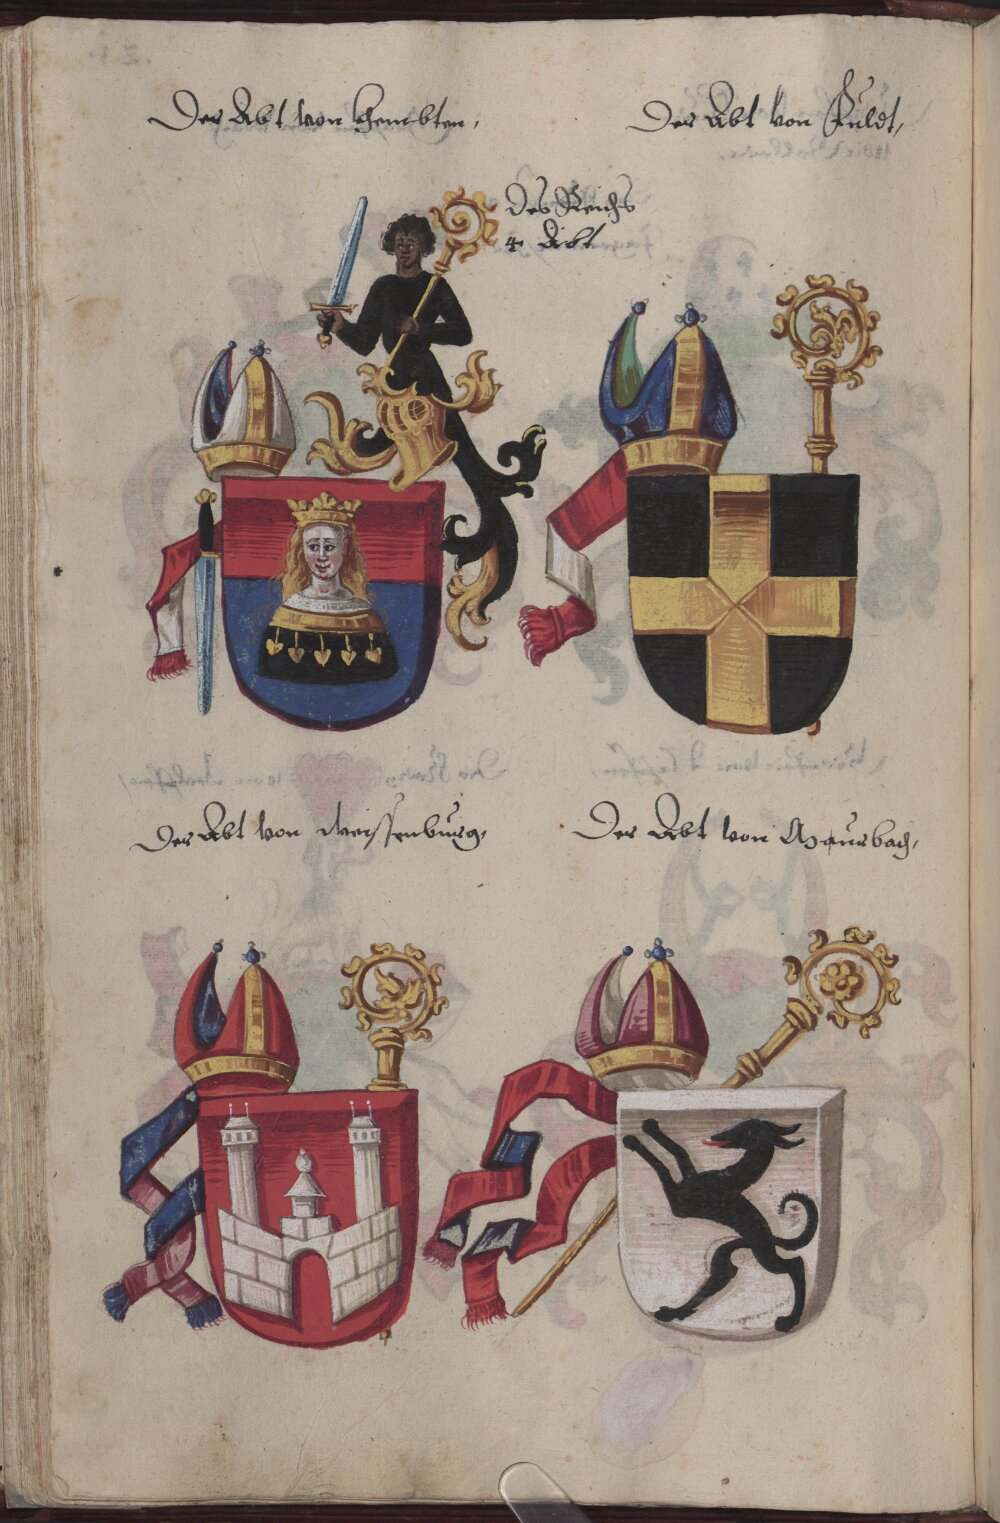 Der Abt von Khembten,
Der Abt von Fuldt,
Des Reichs
4 Äbt
Der Abt von Weissenburg,
Der Abt von Maursbach,